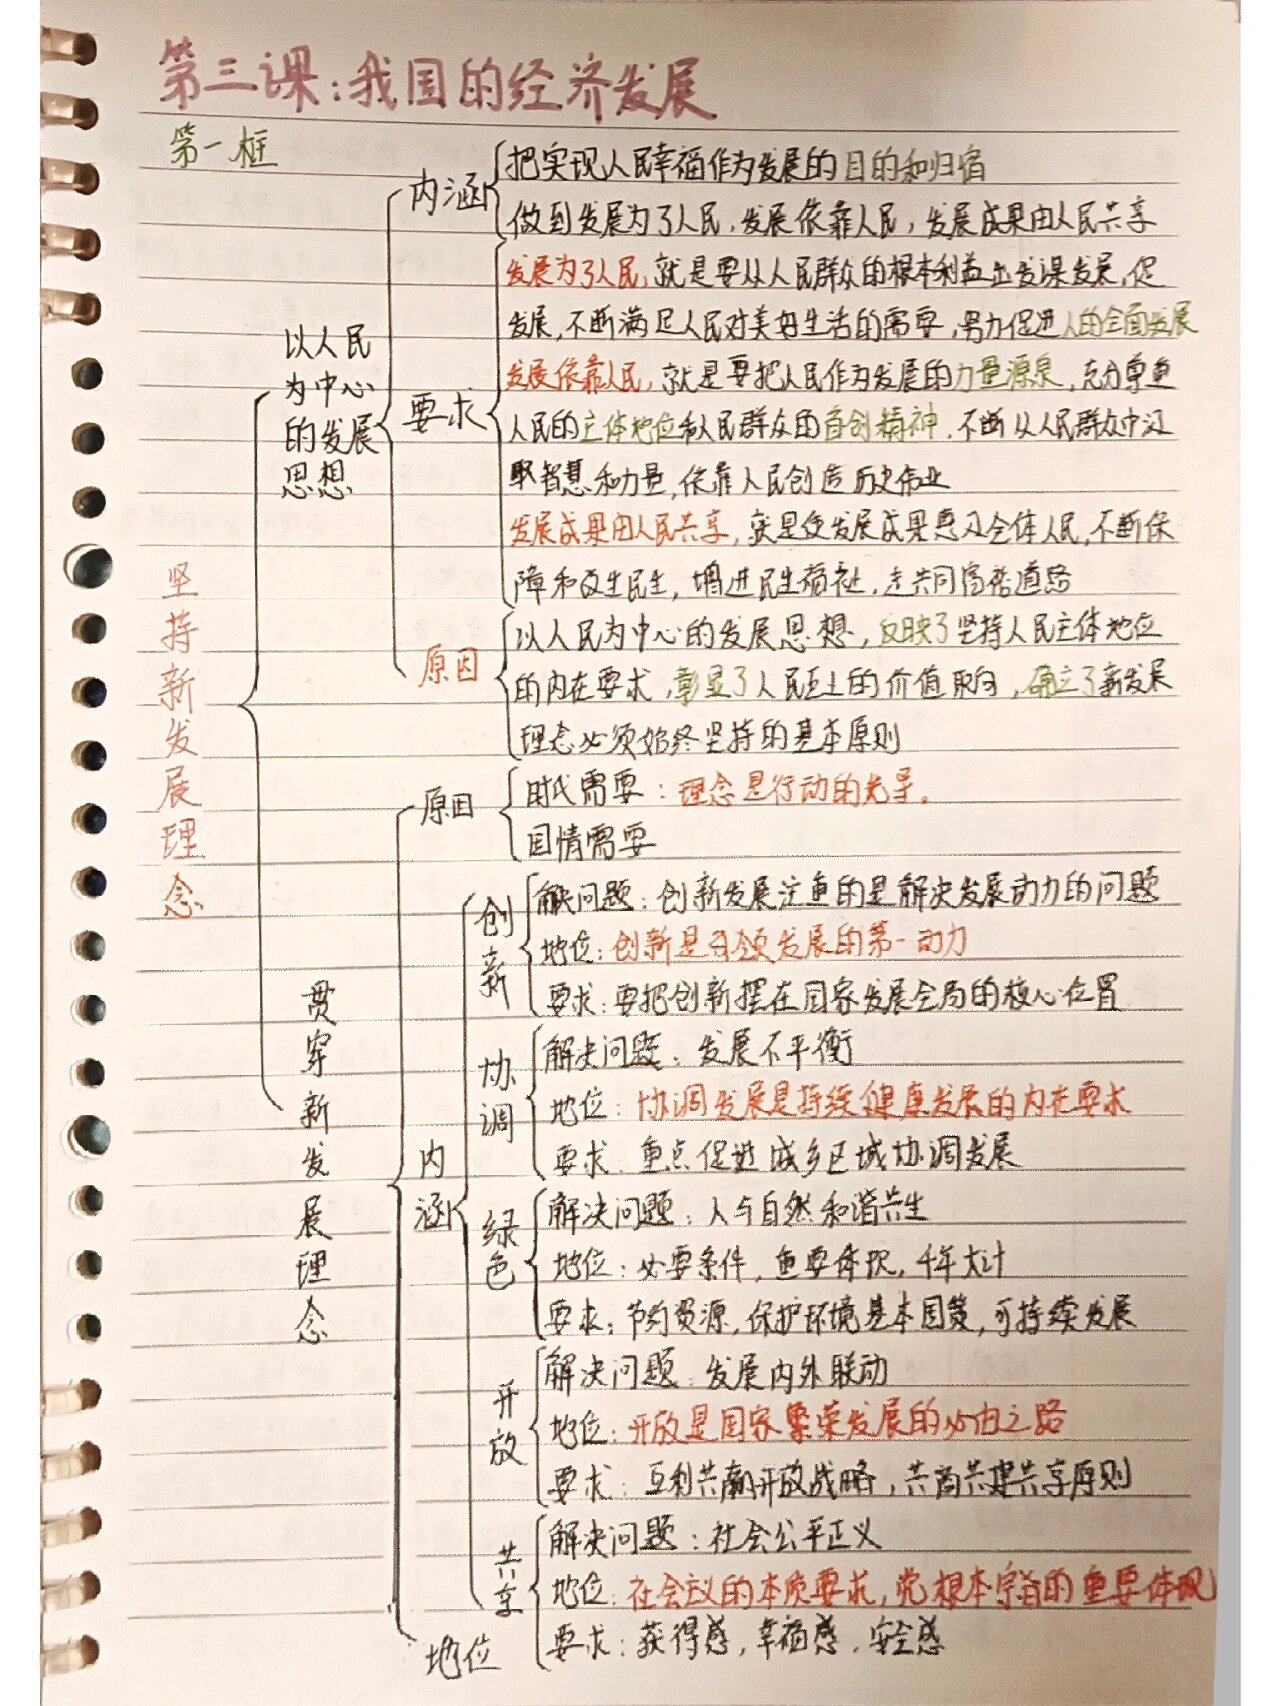 第三课：我国的经济发展
第一框
坚持新发展理念
以人民
为中心
的发展
思想
内涵
把实现人民幸福作为发展的目的和归宿
做到发展为了人民，发展依靠人民，发展成果由人民共享
要求
发展为了人民，就是要从人民群众的根本利益出发谋发展，促
发展，不断满足人民对美好生活的需要，努力促进人的全面发展
发展依靠人民，就是要把人民作为发展的力量源泉，充分尊重
人民的主体地位和人民群众的首创精神，不断从人民群众中汲
取智慧和力量，依靠人民创造历史伟业
发展成果由人民共享，就是使发展成果惠及全体人民，不断保
障和改生民生，增进民生福祉，走共同富裕道路
原因
以人民为中心的发展思想，反映了坚持人民主体地位
的内在要求，彰显了人民至上的价值取向，确立了新发展
理念必须始终坚持的基本原则
贯穿新发展理念
原因
时代需要：理念是行动的先导。
国情需要
内涵
创新
解决问题：创新发展注重的是解决发展动力的问题
地位：创新是引领发展的第一动力
要求：要把创新摆在国家发展全局的核心位置
协调
解决问题：发展不平衡
地位：协调发展是持续健康发展的内在要求
要求：重点促进城乡区域协调发展
绿色
解决问题：人与自然和谐共生
地位：必要条件，重要体现，千年大计
要求：节约资源，保护环境基本国策，可持续发展
开放
解决问题：发展内外联动
地位：开放是国家繁荣发展的必由之路
要求：互利共赢开放战略，共商共建共享原则
共享
解决问题：社会公平正义
地位：社会主义的本质要求，党根本宗旨的重要体现
要求：获得感，幸福感，安全感
地位